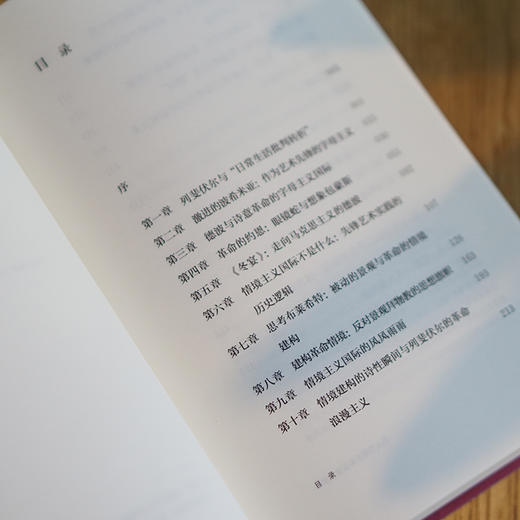 目 录
序
第一章 列斐伏尔与“日常生活批判转折”
第二章 激进的波希米亚：作为艺术先锋的字母主义
第三章 德波与诗意革命的字母主义国际
第四章 革命的约恩：眼镜蛇与想象包豪斯
第五章 《冬宴》：走向马克思主义的德波
第六章 情境主义国际不是什么：先锋艺术实践的
历史逻辑
107
第七章 思考布莱希特：被动的景观与革命的情境
建构
125
第八章 建构革命情境：反对景观拜物教的思想旗帜
163
第九章 情境主义国际的风风雨雨
193
第十章 情境建构的诗性瞬间与列斐伏尔的革命
浪漫主义
213
目 录